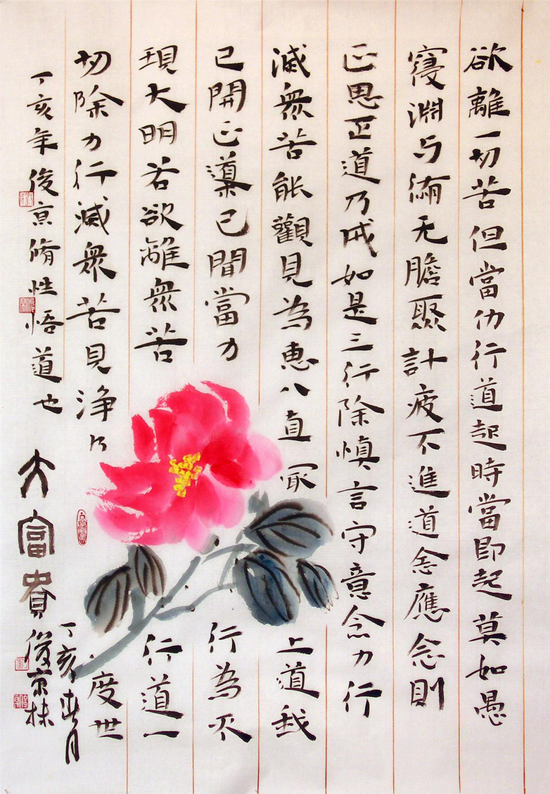 欲離一切苦但當仂行道起時當即起莫如愚
淵与无瞻聚計疲不進道念應念則
正思正道乃成如是三行除慎言守意念力行
滅衆苦能觀見為惠八直 上道我
已開正道已聞當力 行為不
現大明若欲離衆苦 行道一
切除力行滅衆苦見淨乃 度世
丁亥年俊京脩性悟道也
大富貴
丁亥春月
俊京林